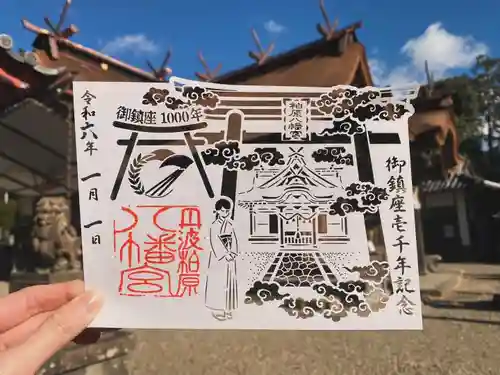 令和六年 一月一日
御鎮座1000年
柏原八幡宮
御鎮座壱千年記念
丹波柏原
八幡宮